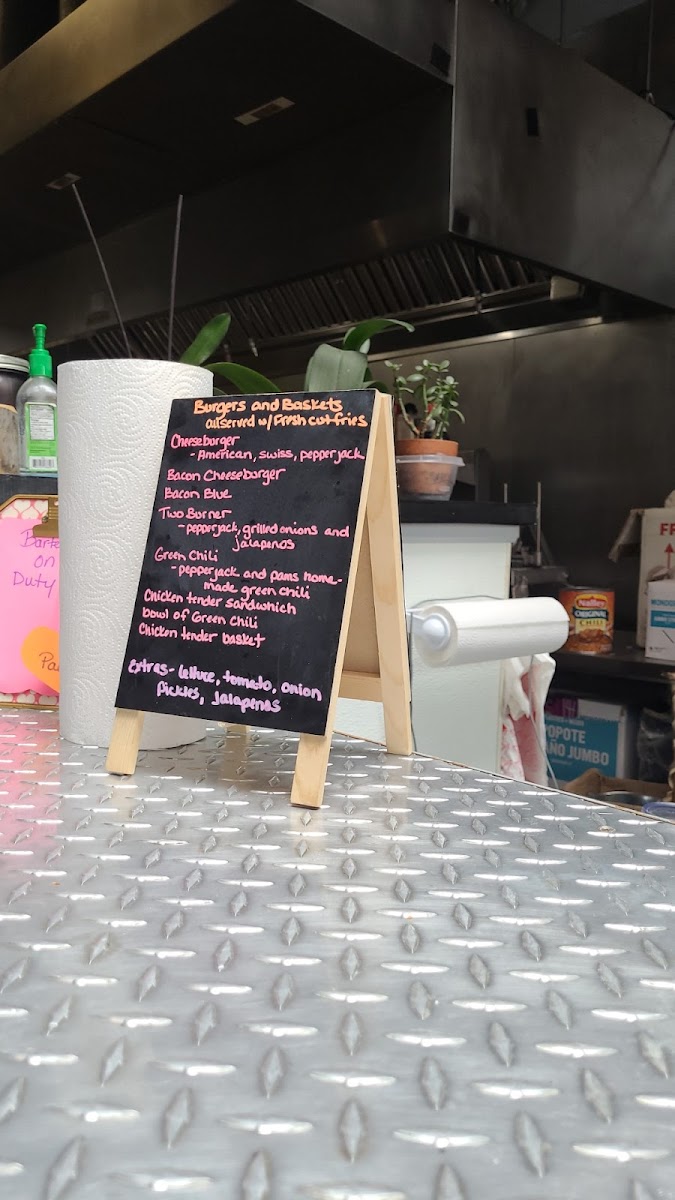 Burgers and Baskets
all served w/ Fresh cut fries
Cheeseburger
- American, swiss, pepperjack
Bacon Cheeseburger
Bacon Blue
Two Burner
- pepperjack, grilled onions and
jalapenos
Green Chili
- pepperjack and pams home-
made green chili
Chicken tender sandwhich
bowl of Green Chili
Chicken tender basket
Extras- lettuce, tomato, onion
Pickles, Jalapenos
on
Duty
Nalley
ORIGINAL
CHILI
POPOTE
JUMBO